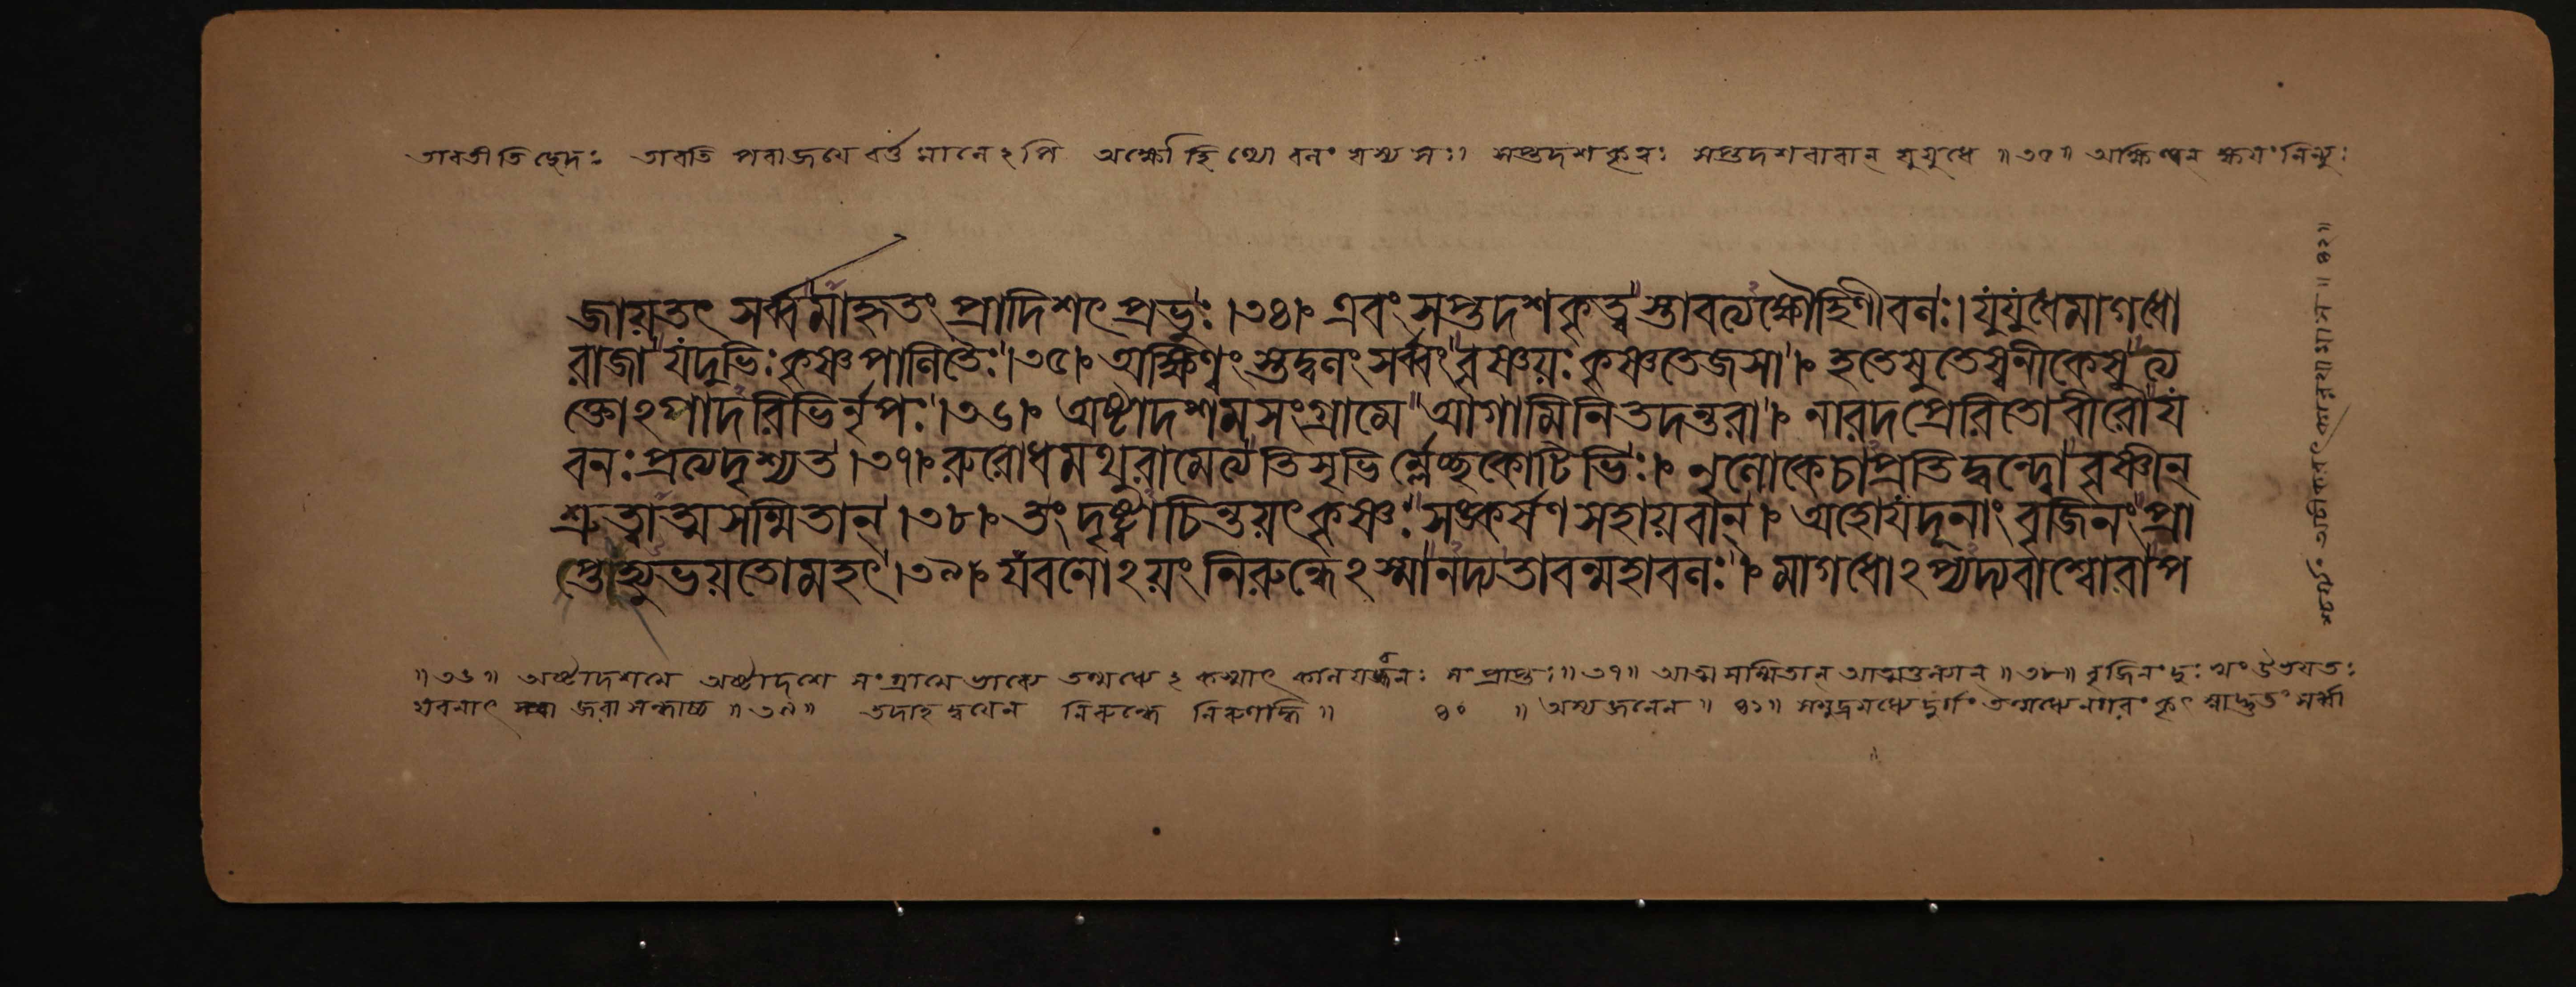 তাবতীতিচ্ছেদঃ তাবতি পরাজয়ে বর্ত্তমানেঽপি অক্ষৌহিণ্যো বলং যস্য সঃ। সপ্তদশকৃত্বঃ সপ্তদশবারান্ যুযুধে ॥৩৫॥ অক্ষিণ্বন্ ক্ষয়ং নিন্যুঃ
জায়তৎ সর্ব্বমাহৃতং প্রাদিশৎ প্রভুঃ।৩৪। এবং সপ্তদশকৃত্বস্তাবত্যক্ষৌহিণীবলঃ। যুযুধেমাগধো
রাজা যদুভিঃ কৃষ্ণপালিতৈঃ।৩৫। অক্ষিণ্বংস্তদ্বলং সর্ব্বং বৃষ্ণয়ঃ কৃষ্ণতেজসা। হতেষুতেষ্বনীকেষু ত্য
ক্তোঽযাদরিভির্নৃপঃ।৩৬। অষ্টাদশমসংগ্রামে আগামিনিতদন্তরা। নারদপ্রেরিতোবীরো য
বনঃ প্রত্যদৃশ্যত।৩৭। রুরোধমথুরামেত্য তিসৃভির্ম্লেচ্ছকোটিভিঃ। নৃলোকেচাপ্রতিদ্বন্দ্বো বৃষ্ণীন্
শ্রুত্বাত্মসম্মিতান্।৩৮। তং দৃষ্ট্বাচিন্তয়ৎকৃষ্ণঃ সঙ্কর্ষণসহায়বান্। অহোযদূনাং বৃজিনং প্রা
প্তংহ্যুভয়তোমহৎ।৩৯। যবনোঽয়ং নিরুন্ধেঽস্মানদ্যতাবন্মহাবলঃ। মাগধোঽপ্যদ্যবাশ্বোবাপ
॥৩৬॥ অষ্টাদশমে অষ্টাদশে সংগ্রামে ভাব্যে তন্মধ্যেঽকস্মাৎ কালযবনঃ সংপ্রাপ্তঃ॥৩৭॥ আত্মসম্মিতান্ আত্মতুল্যান্ ॥৩৮॥ বৃজিনং দুঃখং উভয়তঃ
যবনাৎ জরাসন্ধাচ্চ ॥৩৯॥ তদাহ দ্বয়েন নিরুন্ধে নিরুণদ্ধি॥ ৪০ ॥ অস্য জনেন ॥৪১॥ সমুদ্রমধ্যে দুর্গং তন্মধ্যেনগরং কৃৎস্নাদ্ভুতং সর্ব্বা